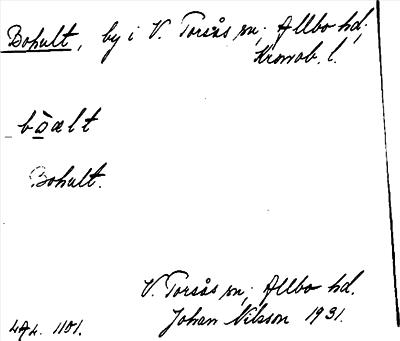 Bohult, by i V. Torsås sn; Allbo hd;
Kronob. l.
bò̲ælt
Bohult.
V. Torsås sn; Allbo hd.
Johan Nilsson 1931.
1101.